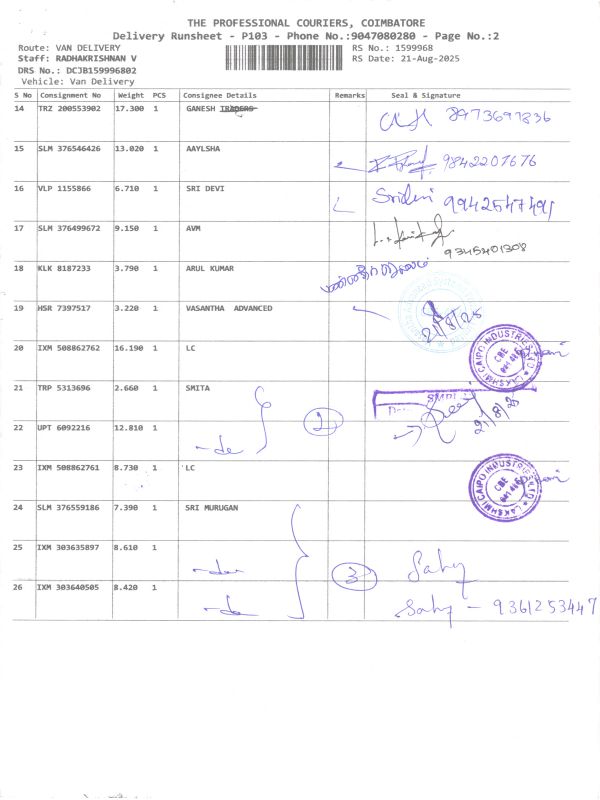 THE PROFESSIONAL COURIERS, COIMBATORE
Delivery Runsheet - P103 - Phone No.:9047080280 - Page No.:2
Route: VAN DELIVERY RS No.: 1599968
Staff: RADHAKRISHNAN V RS Date: 21-Aug-2025
DRS No.: DCJB159996802
Vehicle: Van Delivery
S No Consignment No Weight PCS Consignee Details Remarks Seal & Signature
14 TRZ 200553902 17.300 1 GANESH TRADERS 8973697836
15 SLM 376546426 13.020 1 AAYLSHA 9842207676
16 VLP 1155866 6.710 1 SRI DEVI Sridevi 9942547491
17 SLM 376499672 9.150 1 AVM 9345401308
18 KLK 8187233 3.790 1 ARUL KUMAR
19 HSR 7397517 3.220 1 VASANTHA ADVANCED 21/8/25
20 IXM 508862762 16.190 1 LC LAKSHMI CAIPO INDUSTRIES LTD CBE
21 TRP 5313696 2.660 1 SMITA 2 21/8/25
22 UPT 6092216 12.810 1 -do
23 IXM 508862761 8.730 1 LC LAKSHMI CAIPO INDUSTRIES LTD CBE
24 SLM 376559186 7.390 1 SRI MURUGAN
25 IXM 303635897 8.610 1 3 Sahy
26 IXM 303640505 8.420 1 -do Sahy - 9361253447